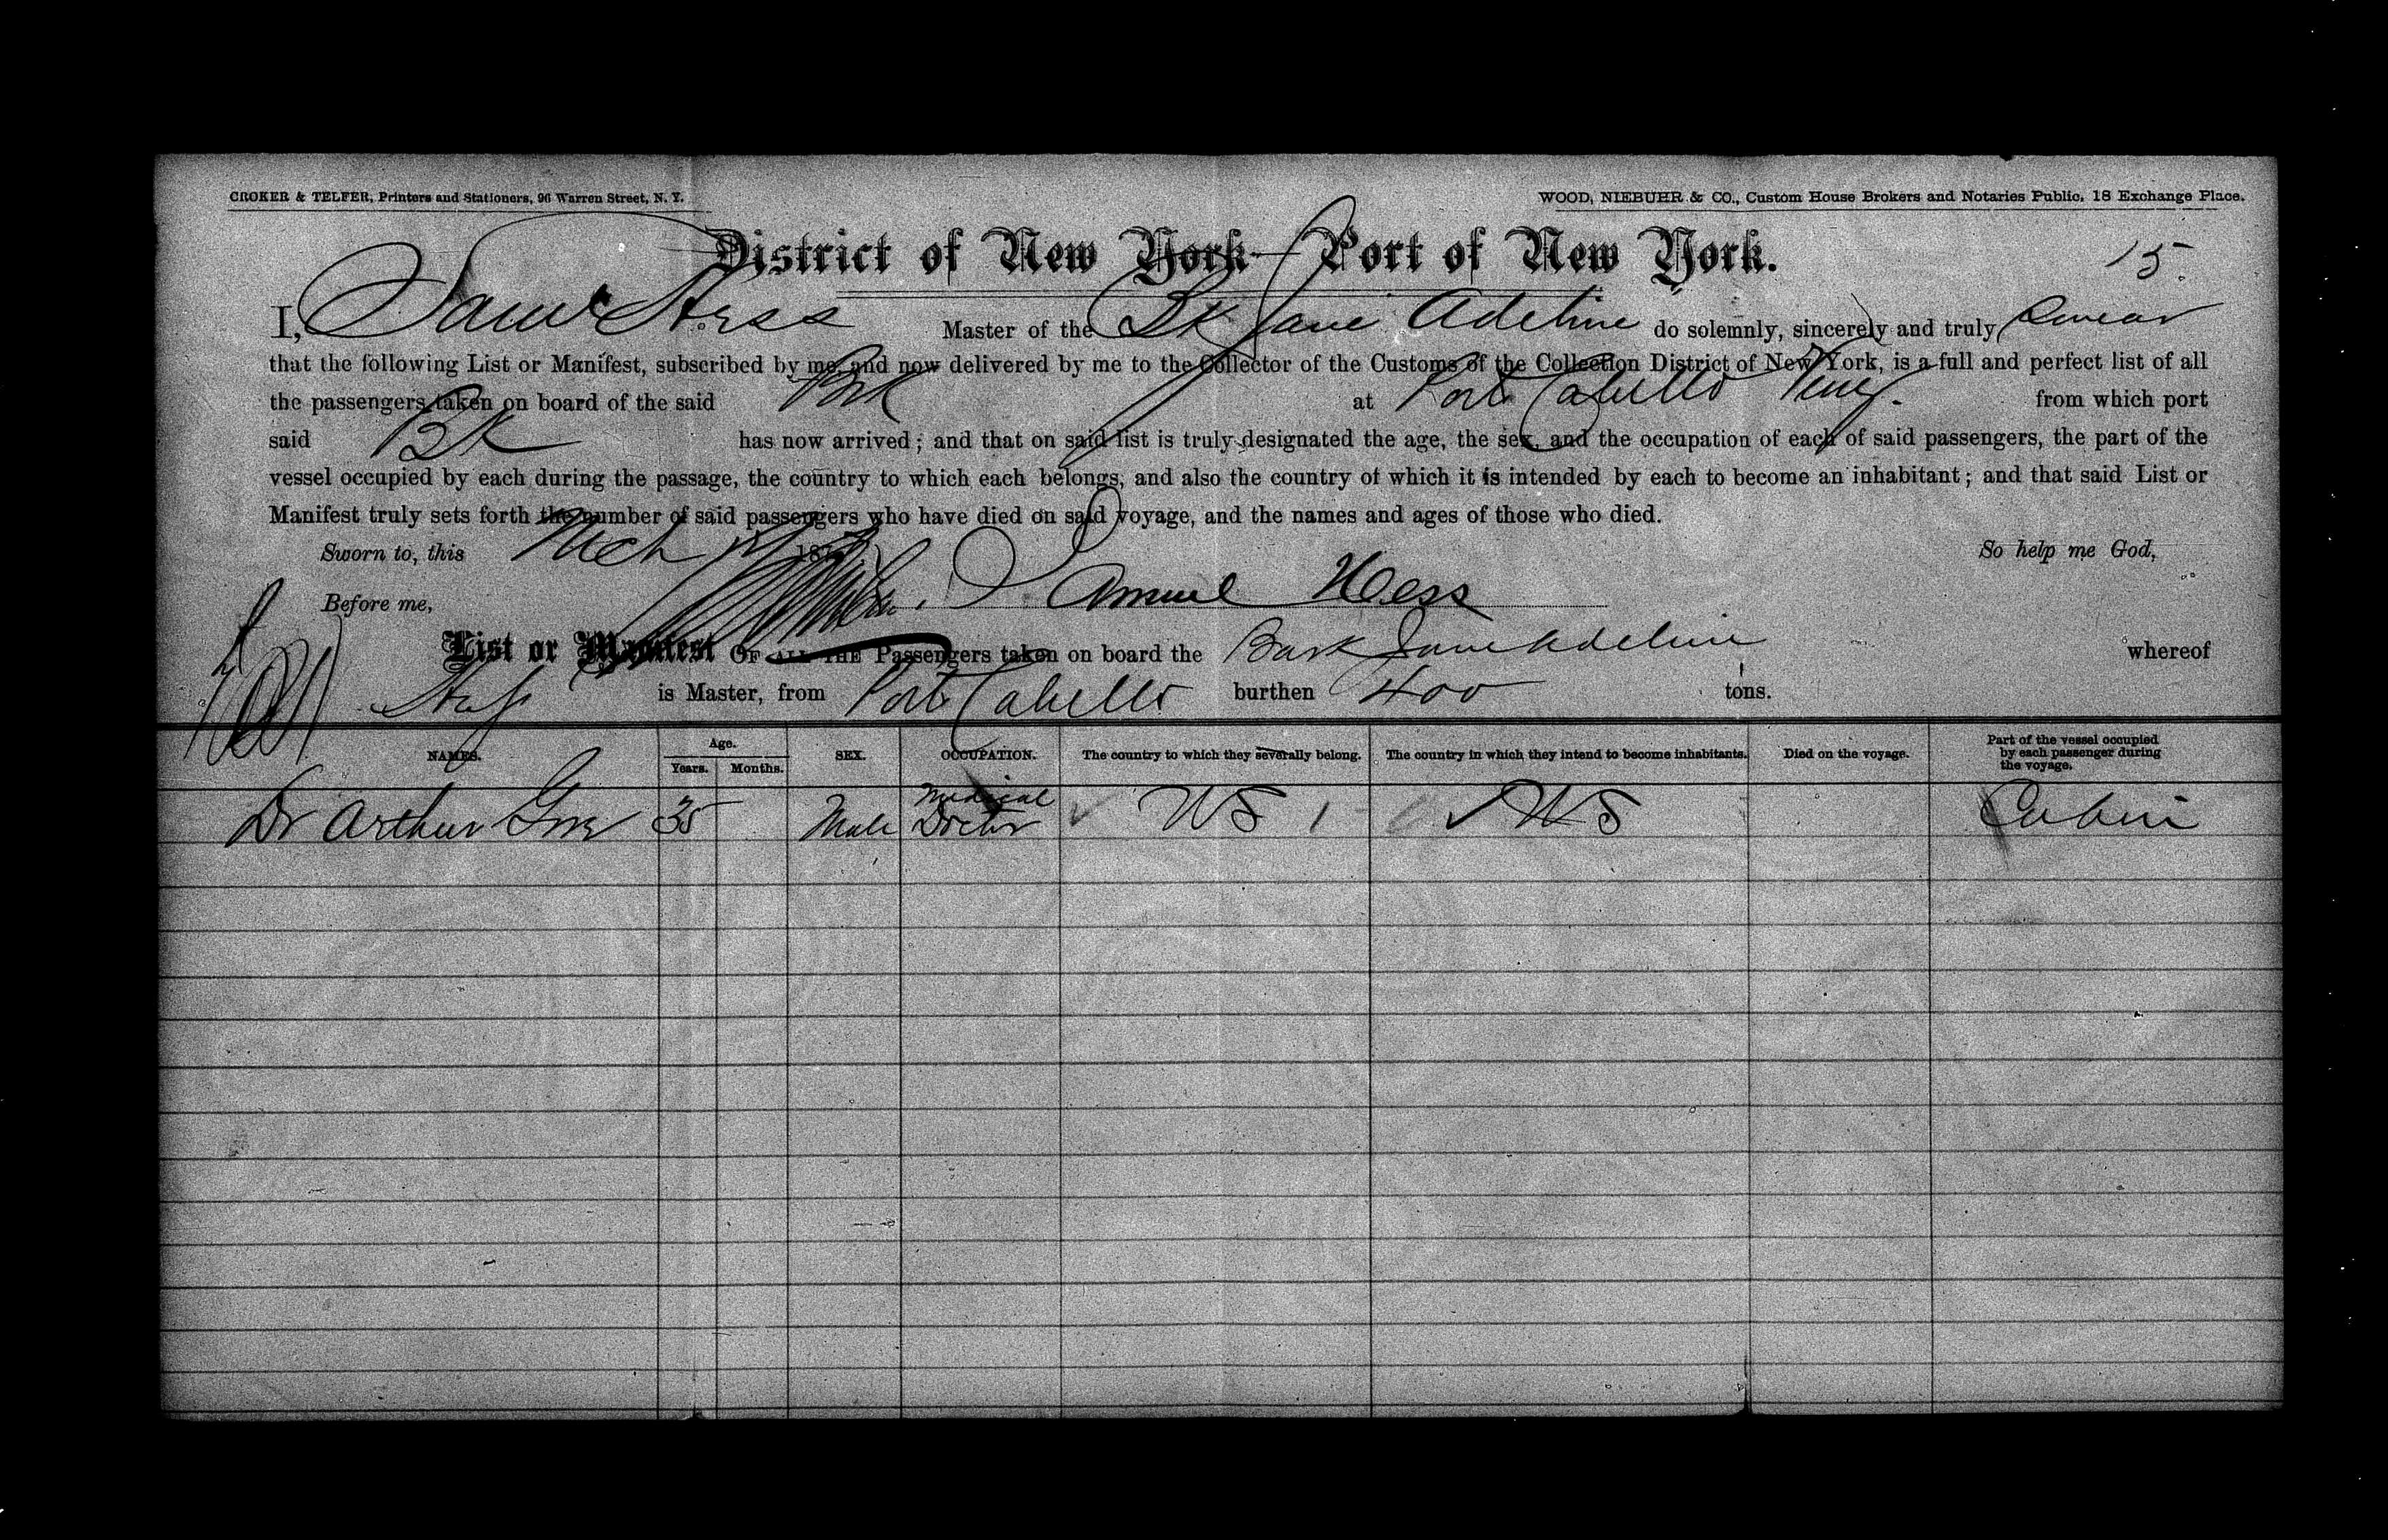 CROKER & TELFER, Printers and Stationers, 96 Warren Street, N. Y.
WOOD, NIEBUHR & CO., Custom House Brokers and Notaries Public, 18 Exchange Place.
District of New York—Port of New York.
15
I, Saml Hess Master of the Bk Jane Adeline do solemnly, sincerely and truly swear
that the following List or Manifest, subscribed by me, and now delivered by me to the Collector of the Customs of the Collection District of New York, is a full and perfect list of all
the passengers taken on board of the said Bk at Porto Cabello Venez. from which port
said Bk has now arrived; and that on said list is truly designated the age, the sex, and the occupation of each of said passengers, the part of the
vessel occupied by each during the passage, the country to which each belongs, and also the country of which it is intended by each to become an inhabitant; and that said List or
Manifest truly sets forth the number of said passengers who have died on said voyage, and the names and ages of those who died.
Sworn to, this Mch 187 So help me God,
Before me, Samuel Hess
List or Manifest OF ALL THE Passengers taken on board the Bark Jane Adeline whereof
Hess is Master, from Porto Cabello burthen 400 tons.
NAMES. Age. Years. Months. SEX. OCCUPATION. The country to which they severally belong. The country in which they intend to become inhabitants. Died on the voyage. Part of the vessel occupied by each passenger during the voyage.
Dr Arthur 35 Male Medical Doctor US US Cabin